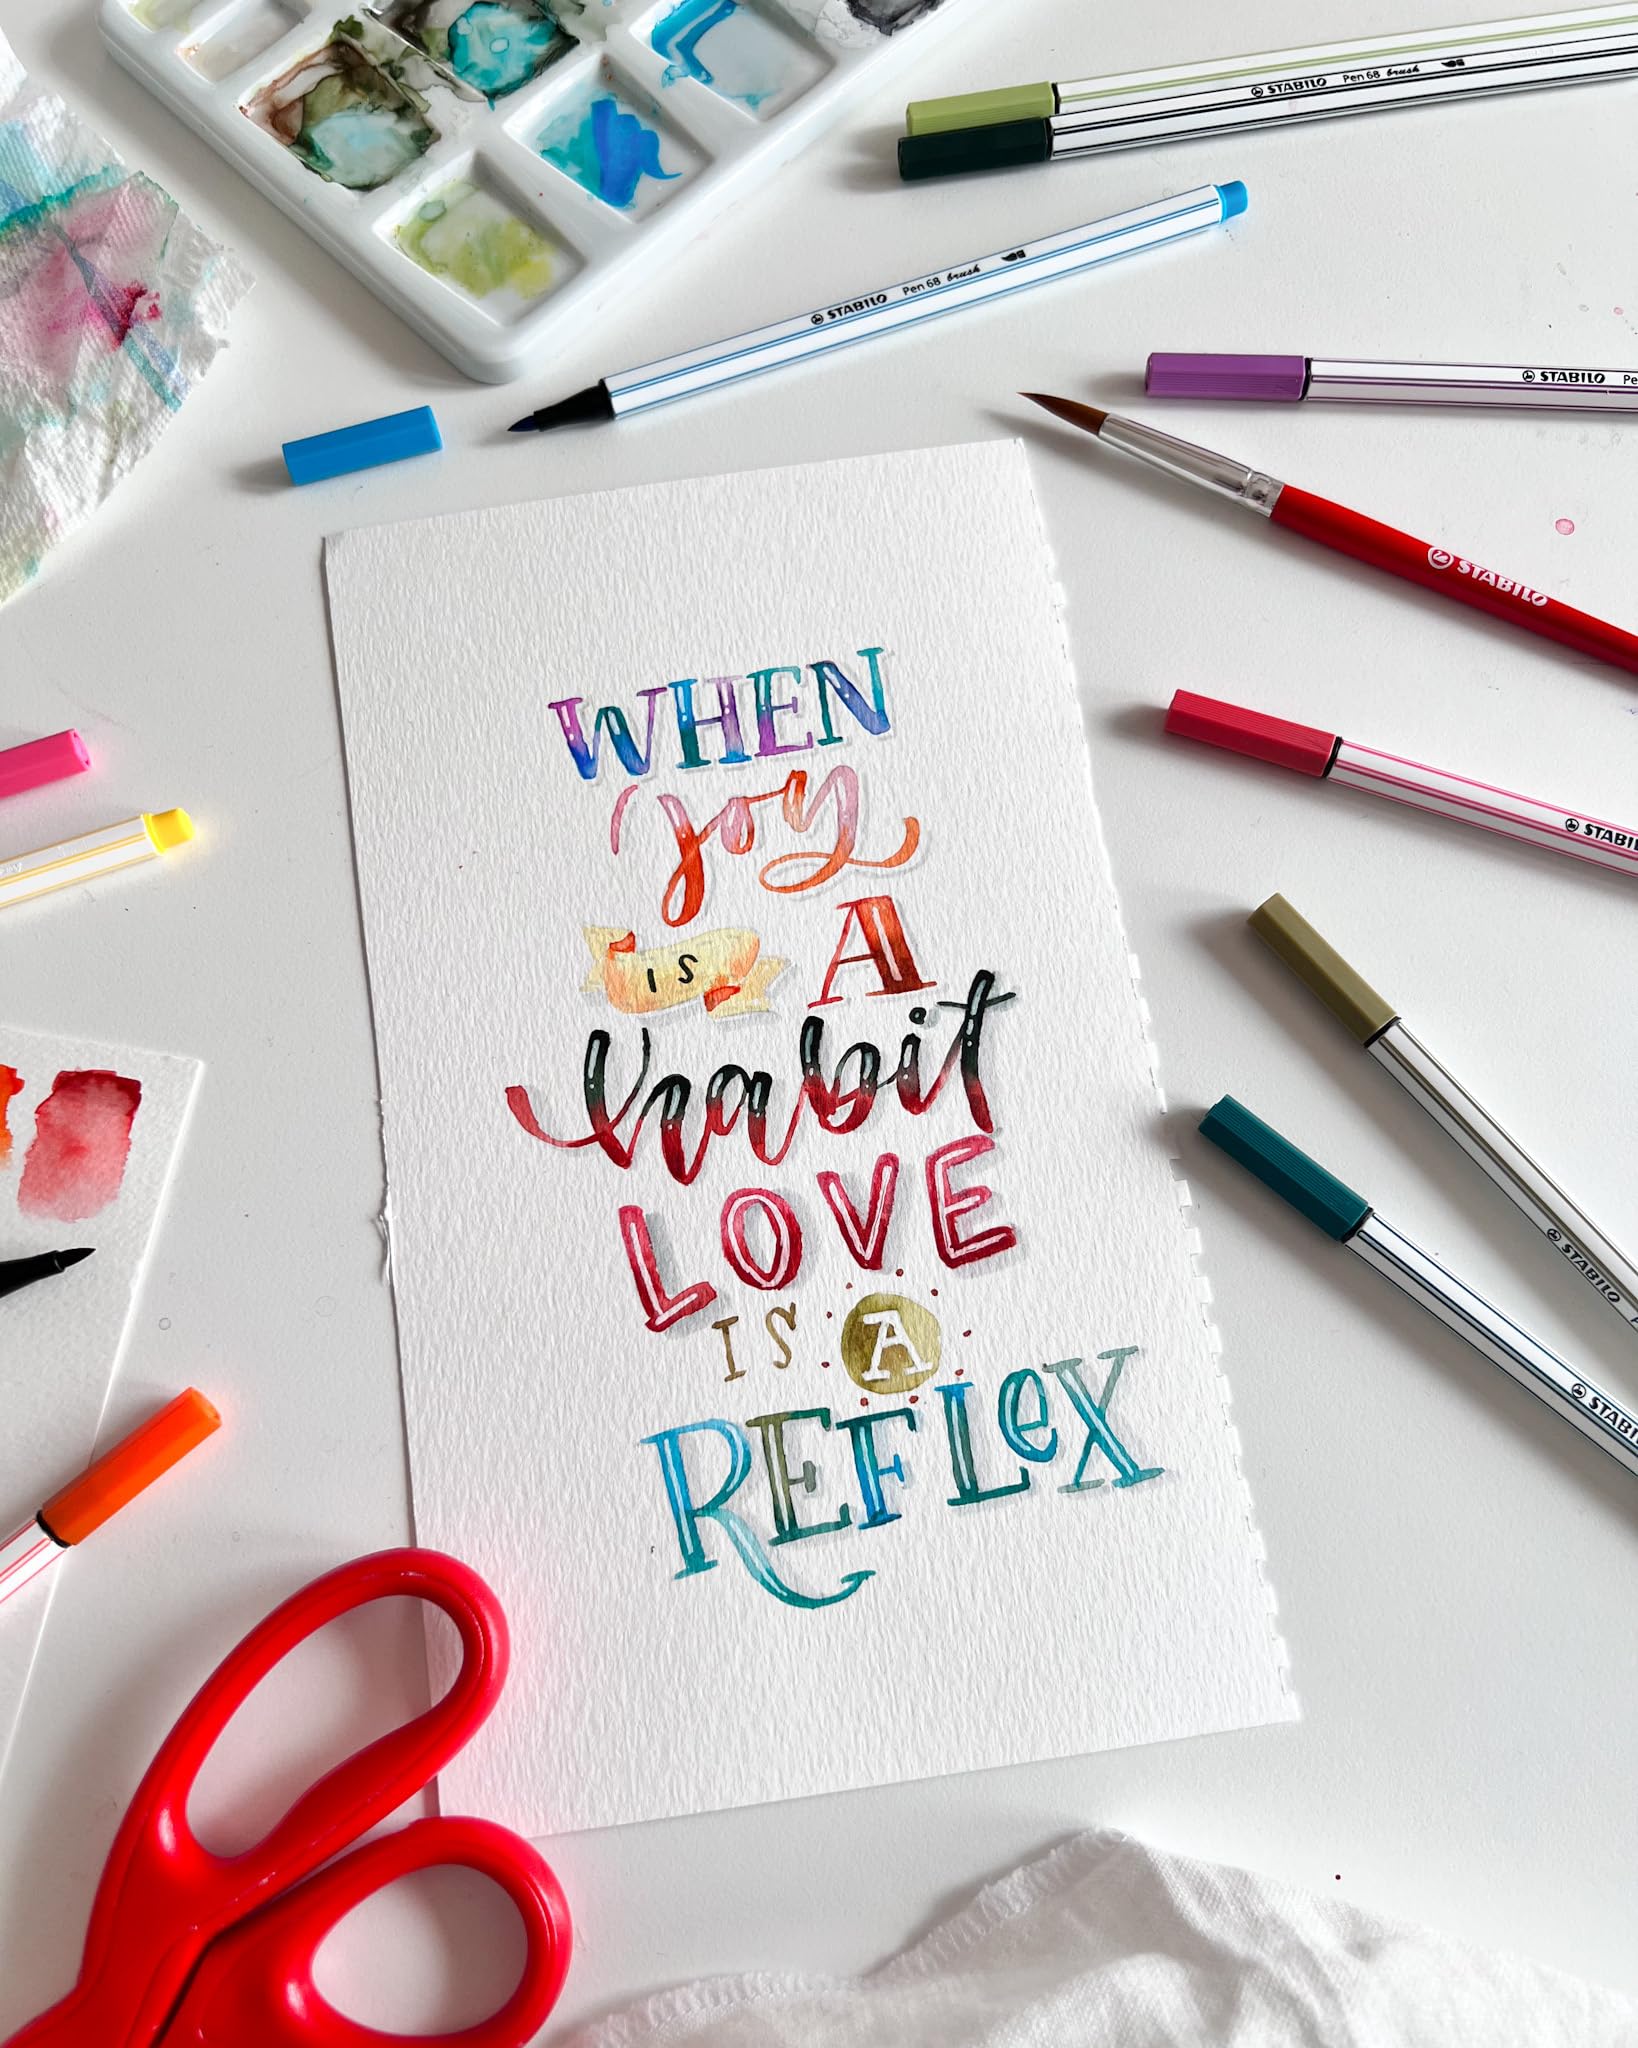 STABILO Pen 68 brush
STABILO Pen 68 brush
STABILO Pe
STABILO
WHEN
joy
IS A
habit
LOVE
IS A
REFLeX
STABIL
STABILO
STABIL